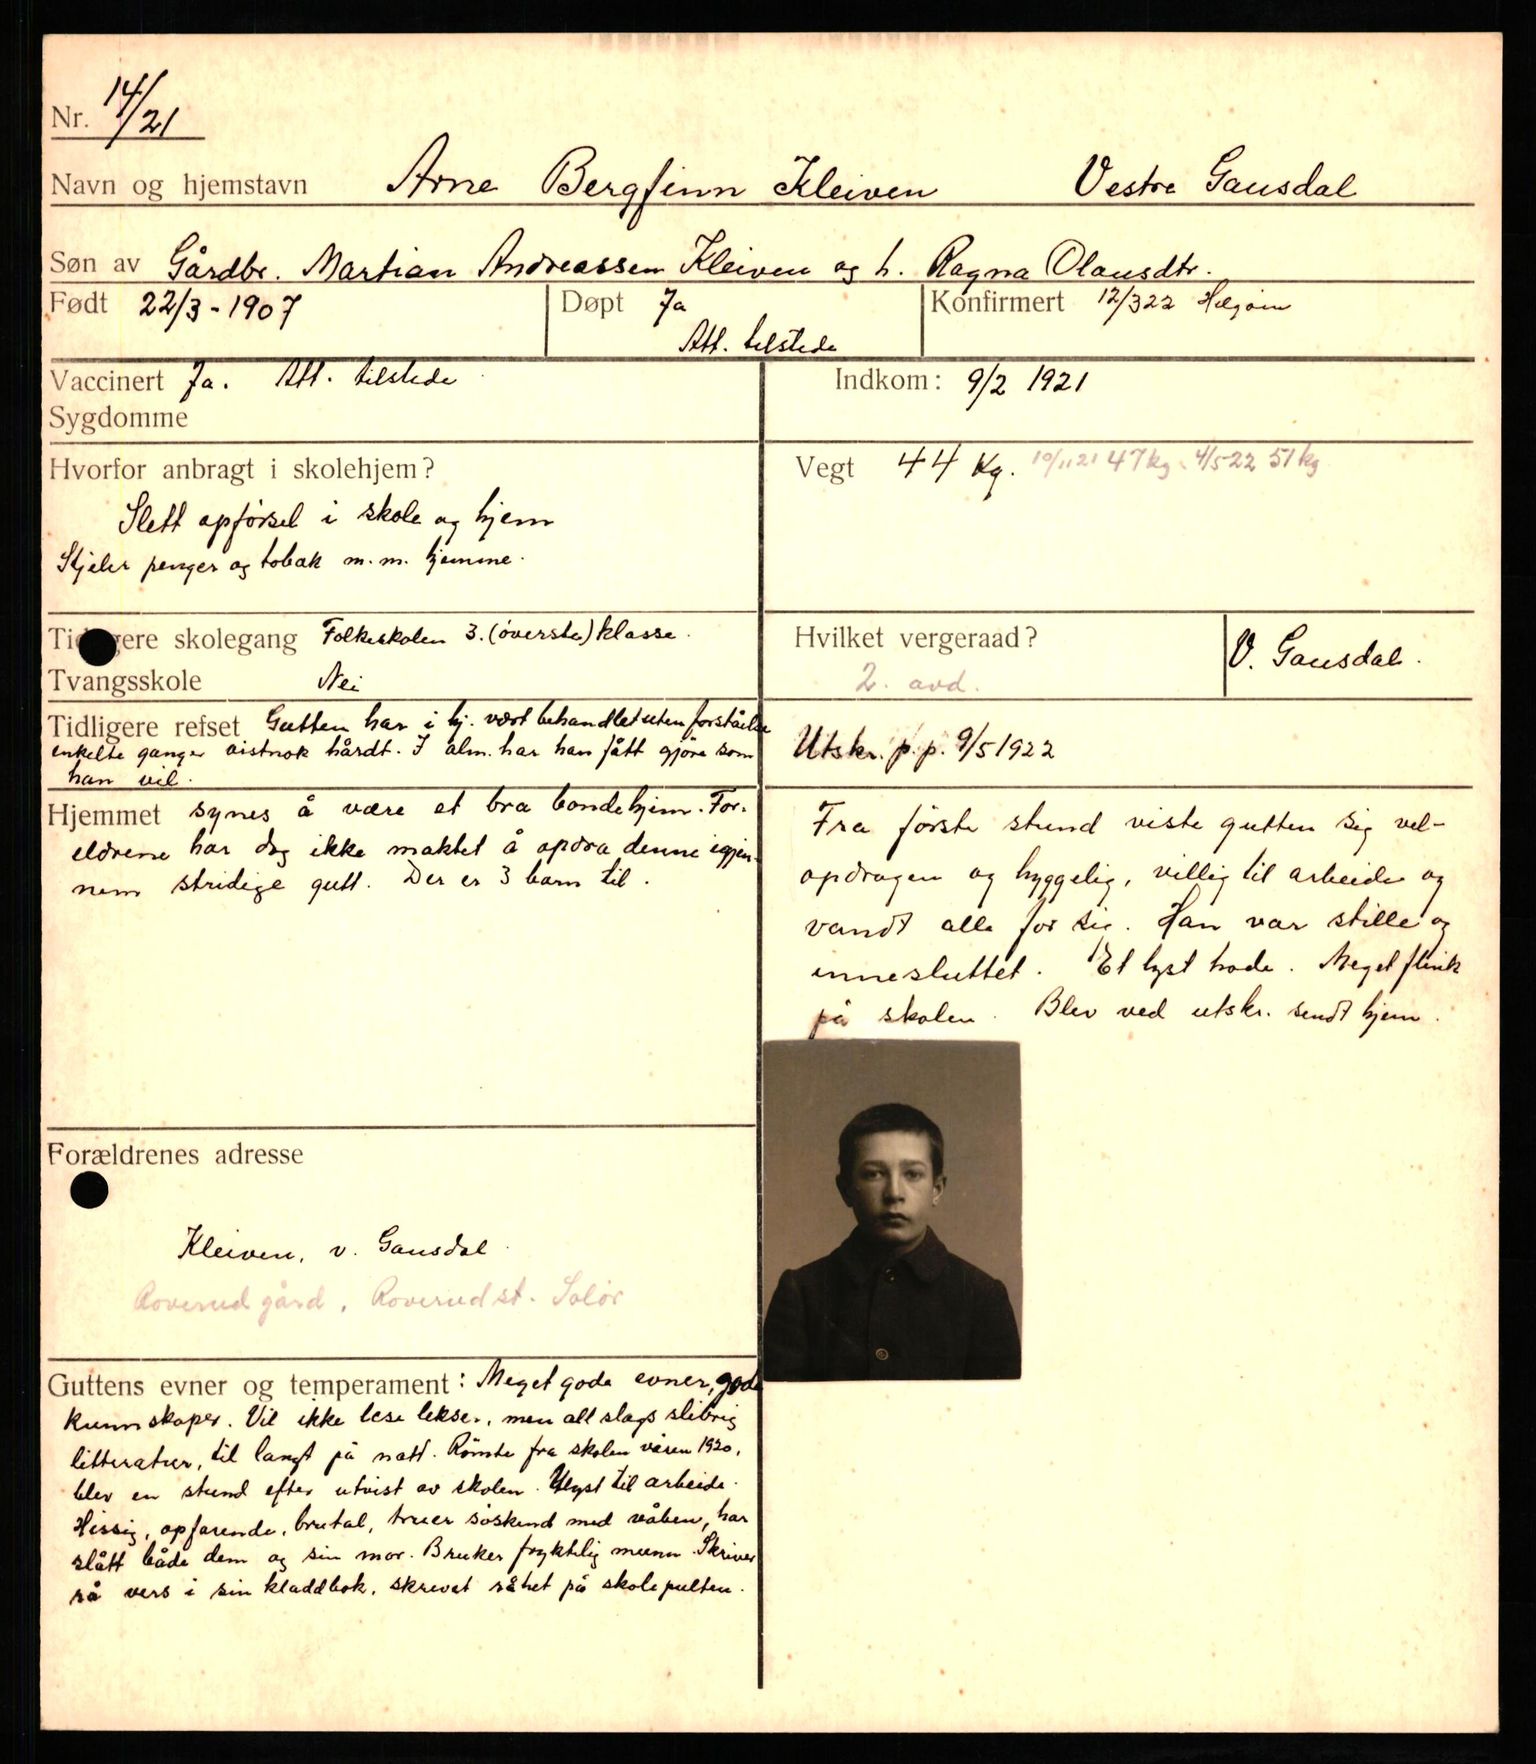 Nr. 14/21
Navn og hjemstavn Arne Bergfinn Kleiven Vestre Gausdal
Søn av Gårdbr. Martian Andreassen Kleiven og h. Ragna Olausdtr.
Født 22/3-1907 Døpt Ja Konfirmert 12/322
Att. tilstede
Vaccinert Ja. Att. tilstede
Sygdomme
Indkom: 9/2 1921
Hvorfor anbragt i skolehjem?
Slett opførsel i skole og hjem
Stjeler penger og tobak m.m. hjemme.
Vegt 44 kg. 10/11 21 47 kg. 4/5-22 51 kg
Tidligere skolegang Folkeskolen 3. (øverste) klasse.
Tvangsskole Nei
Hvilket vergeraad? V. Gausdal.
2. avd.
Tidligere refset Gutten har i hj. vært behandlet uten forståelse
enkelte ganger vistnok hårdt. I alm. har han fått gjøre som
han vil.
Utskr. p.p. 9/5 1922
Hjemmet synes å være et bra bondehjem. For-
eldrene har dog ikke maktet å opdra denne igjen-
nem stridige gutt. Der er 3 barn til.
Fra første stund viste gutten sig vel-
opdragen og hyggelig, villig til arbeide og
vandt alle for sig. Han var stille og
innesluttet. Et lyst hode. Meget flink
på skolen. Blev ved utskr. sendt hjem.
Forældrenes adresse
Kleiven, v. Gausdal.
Roverud gård, Roverud st. Solør
Guttens evner og temperament: Meget gode evner, gode
kunnskaper. Vil ikke lese lekser, men all slags slibrig
litteratur, til langt på natt. Rømte fra skolen våren 1920,
blev en stund efter utvist av skolen. Ulyst til arbeide.
Hissig, opfarende, brutal, truer søskend med våben, har
slått både dem og sin mor. Bruker fryktelig munn. Skriver
rå vers i sin kladdbok, skrevet råhet på skolepulten.